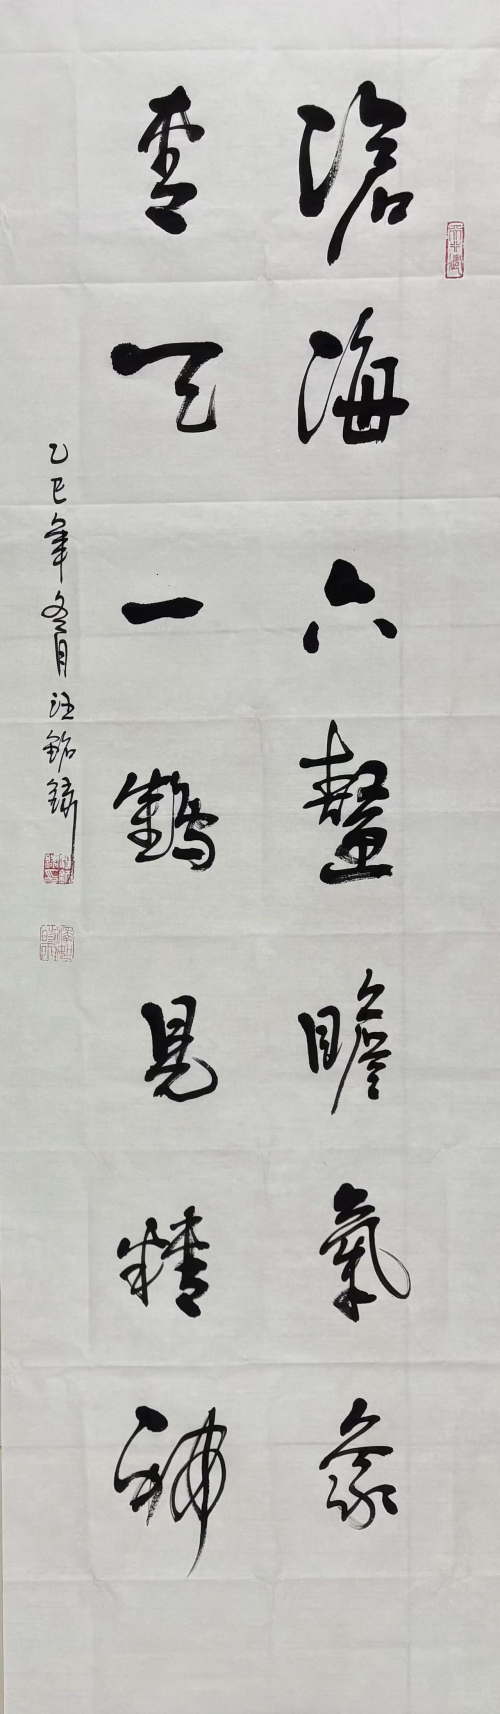 滄海六鼇瞻氣象
青天一鶴見精神
乙巳年冬月汪銘鏽